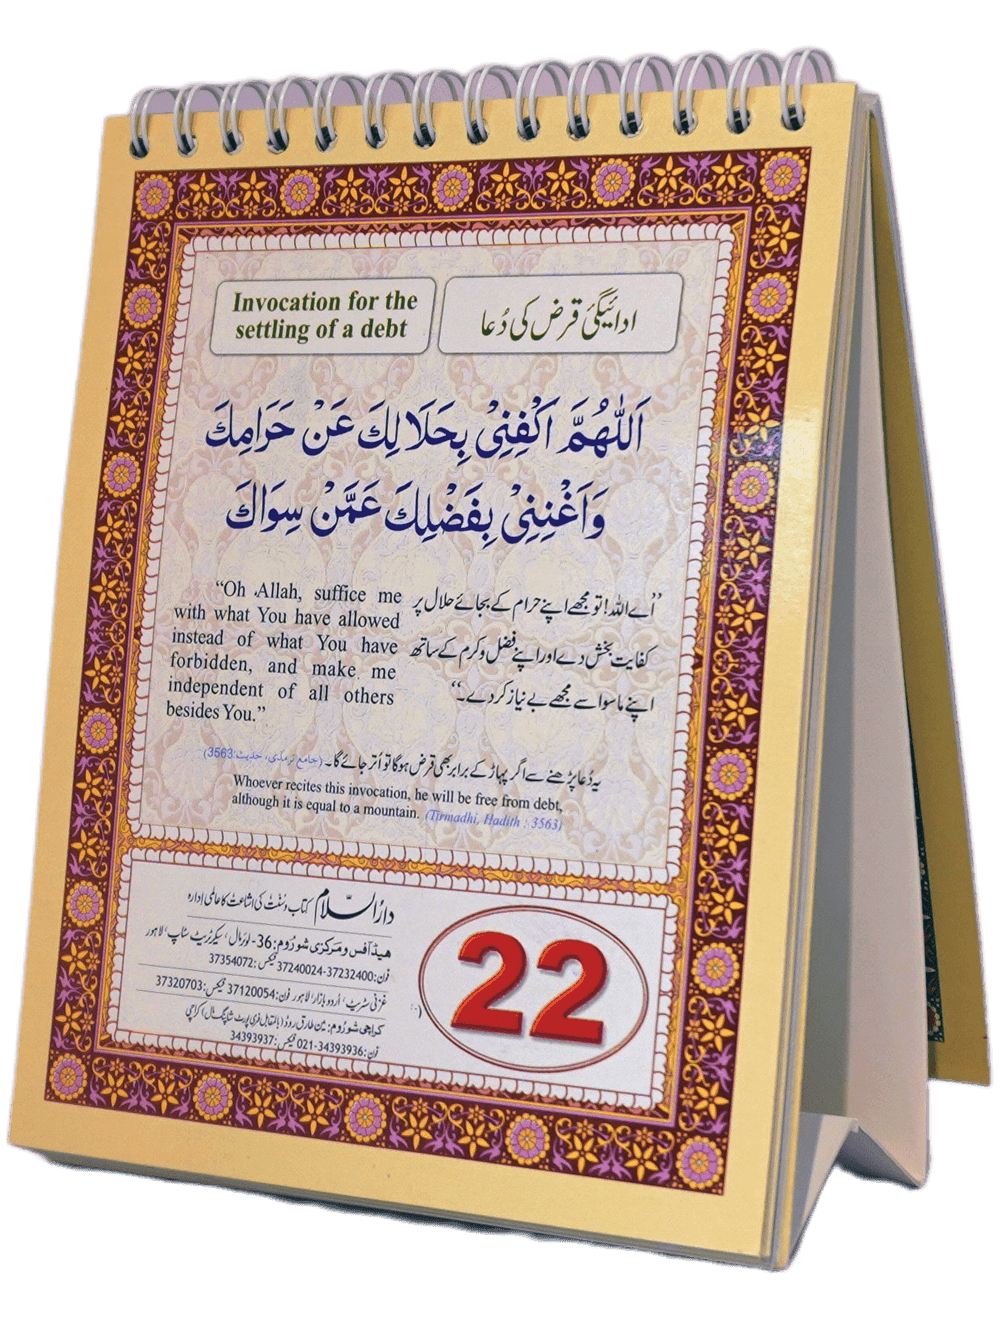 Invocation for the
settling of a debt
ادائیگیٔ قرض کی دُعا
اَللّٰهُمَّ اكْفِنِيْ بِحَلَالِكَ عَنْ حَرَامِكَ
وَاَغْنِنِيْ بِفَضْلِكَ عَمَّنْ سِوَاكَ
“Oh Allah, suffice me
with what You have allowed
instead of what You have
forbidden, and make me
independent of all others
besides You.”
”اے اللہ! تو مجھے اپنے حرام کے بجائے حلال پر
کفایت بخش دے اور اپنے فضل و کرم کے ساتھ
اپنے ماسوا سے مجھے بے نیاز کردے۔“
یہ دُعا پڑھنے سے اگر پہاڑ کے برابر بھی قرض ہوگا تو اُتر جائے گا۔ (جامع ترمذی، حدیث:3563)
Whoever recites this invocation, he will be free from debt,
although it is equal to a mountain. (Tirmadhi, Hadith : 3563)
دارُالسّلام کتاب و سنّت کی اشاعت کا عالمی ادارہ
ھیڈ آفس و مرکزی شو رُوم: 36- لوئر مال، سیکرٹریٹ سٹاپ، لاہور
فون: 37240024-37232400 فیکس: 37354072
غزنی سٹریٹ، اُردو بازار لاہور فون: 37120054 فیکس: 37320703
کراچی شو رُوم: مین طارق روڈ (بالمقابل فری پورٹ شاپنگ مال) کراچی
فون: 021-34393936 فیکس: 34393937
22